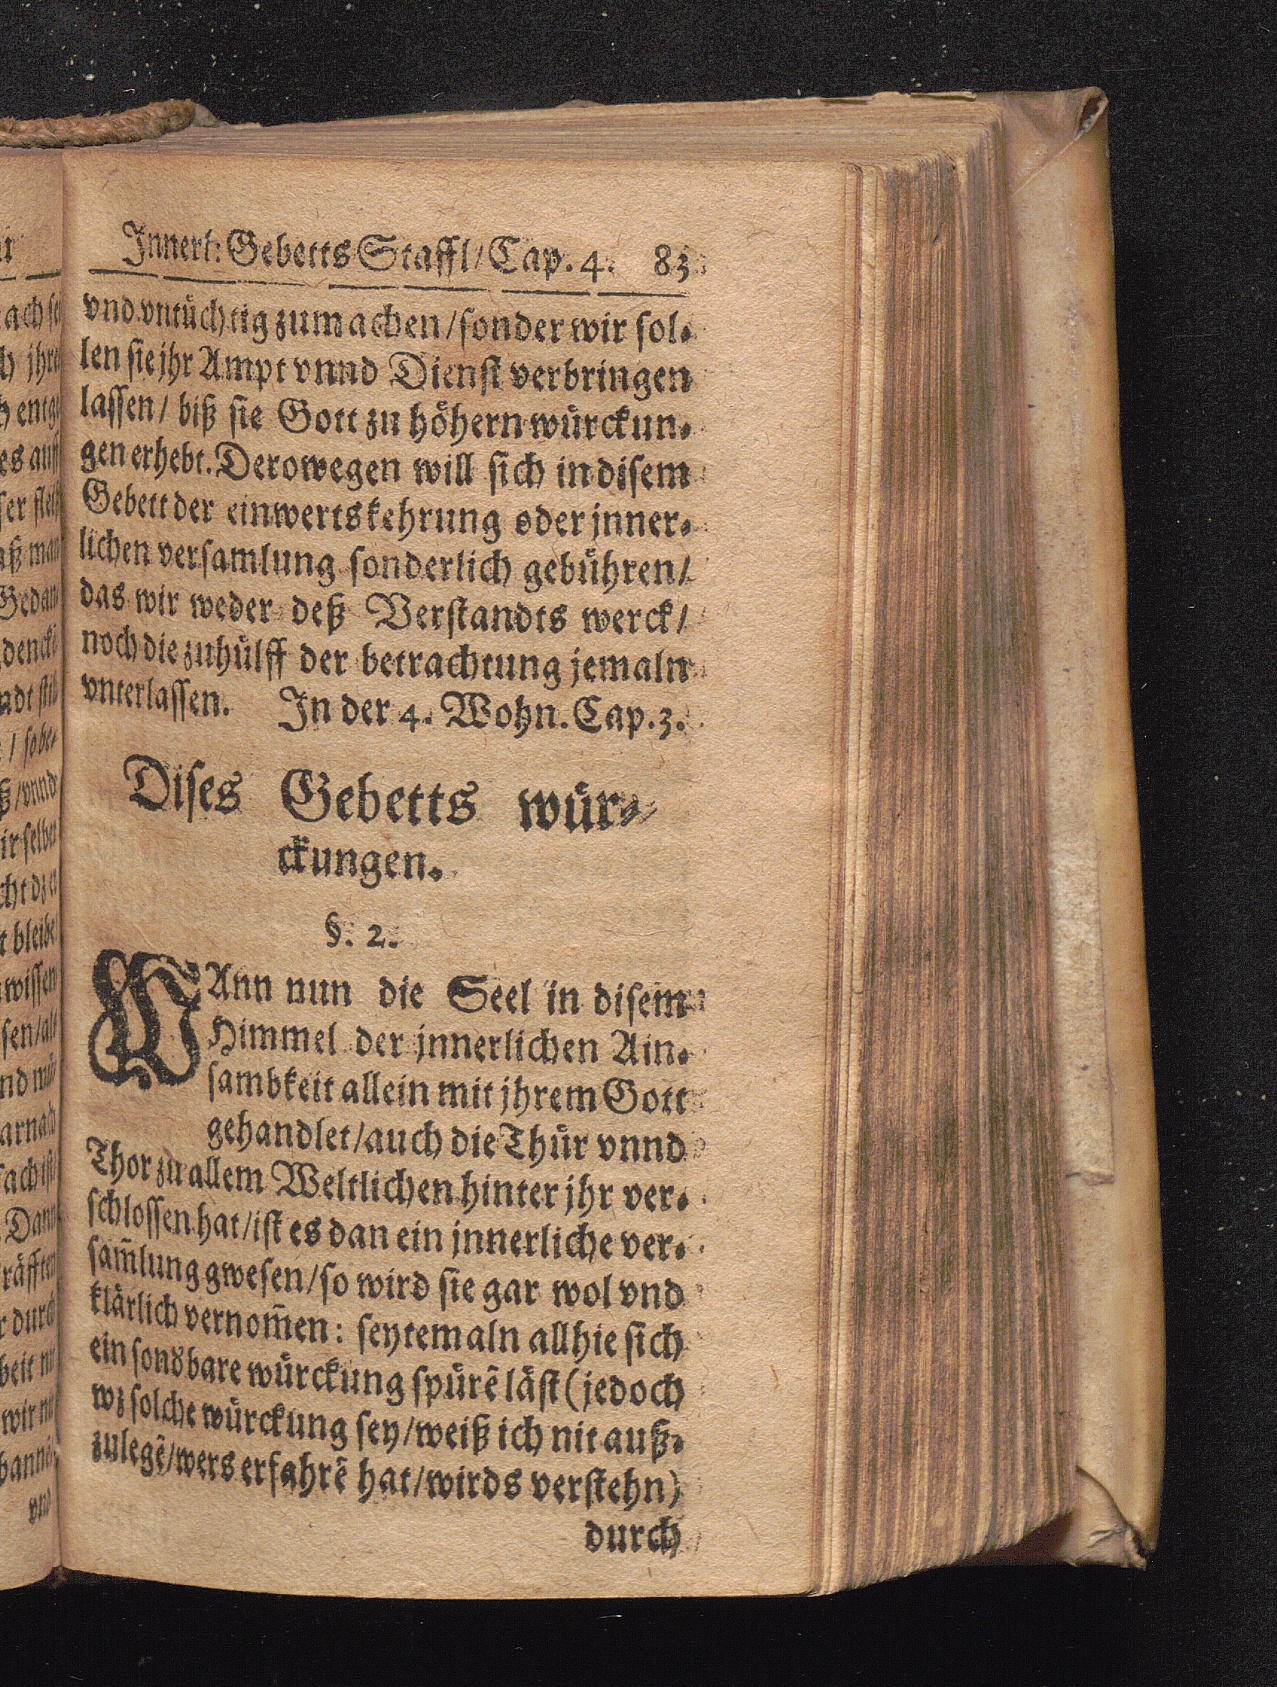 Innerl: Gebetts Staffl/ Cap. 4. 83
vnd vntüchtig zumachen/sonder wir sol-
len sie jhr Ampt vnnd Dienst verbringen
lassen/ biß sie Gott zu höhern würckun-
gen erhebt. Derowegen will sich in disem
Gebett der einwertskehrung oder jnner-
lichen versamlung sonderlich gebühren/
das wir weder deß Verstandts werck/
noch die zuhülff der betrachtung jemaln
vnterlassen. In der 4. Wohn. Cap. 3.
Dises Gebetts wür-
ckungen.
§. 2.
WAnn nun die Seel in disem
Himmel der jnnerlichen Ain-
sambkeit allein mit jhrem Gott
gehandlet/auch die Thür vnnd
Thor zu allem Weltlichen hinter jhr ver-
schlossen hat/ist es dan ein jnnerliche ver-
sam̃lung gwesen/so wird sie gar wol vnd
klärlich vernom̃en: seytemaln allhie sich
ein sondbare würckung spürẽ läst (jedoch
wz solche würckung sey/weiß ich nit auß-
zulegẽ/wers erfahrẽ hat/wirds verstehn)
durch